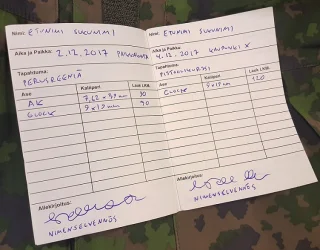 Nimi: ETUNIMI SUKUNIMI
Aika ja Paikka:
2.12.2017
Tapahtuma:
PERUSREENIÄ
Ase Kaliiperi Lask LKM.
AK 7,62 x 39 mm 30
GLOCK 9x19 mm 90
Allekirjoitus:
NIMENSELVENNÖS
Nimi: ETUNIMI SUKUNIMI
Aika ja Paikka:
4.12.2017 KAUPUNKI X
Tapahtuma:
PISTOOLIKURSSI
Ase Kaliiperi Lask LKM.
GLOCK 9x19 mm 120
Allekirjoitus:
NIMENSELVENNÖS